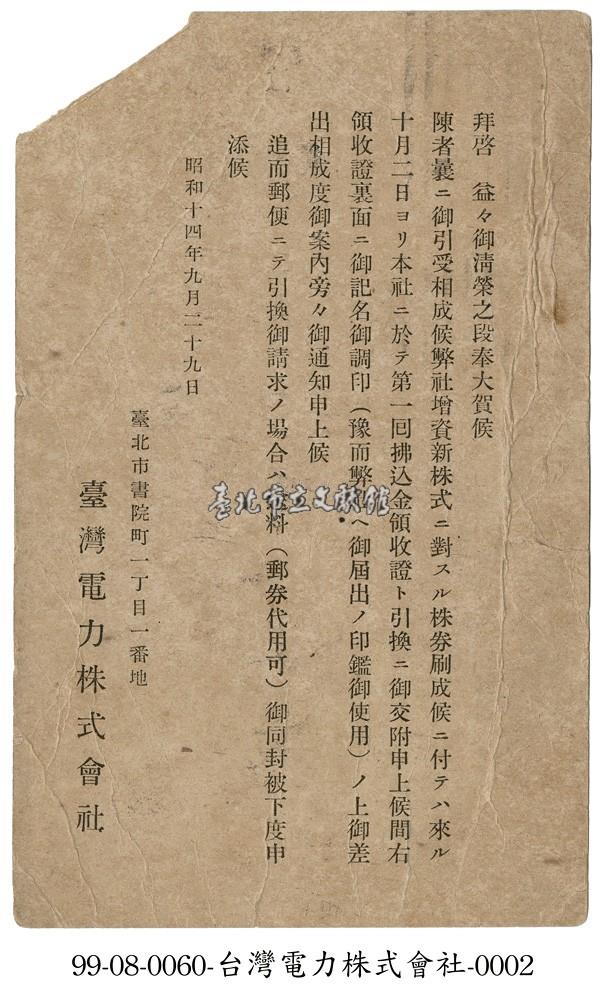 拜啓　益々御淸榮之段奉大賀候
陳者曩ニ御引受相成候弊社增資新株式ニ對スル株券刷成候ニ付テハ來ル
十月二日ヨリ本社ニ於テ第一回拂込金領收證ト引換ニ御交附申上候間右
領收證裏面ニ御記名御調印（豫而弊社ヘ御屆出ノ印鑑御使用）ノ上御差
出相成度御案內旁々御通知申上候
追而郵便ニテ引換御請求ノ場合ハ料（郵券代用可）御同封被下度申
添候
昭和十四年九月二十九日
臺北市書院町一丁目一番地
臺灣電力株式會社
臺北市立文獻館
99-08-0060-台灣電力株式會社-0002